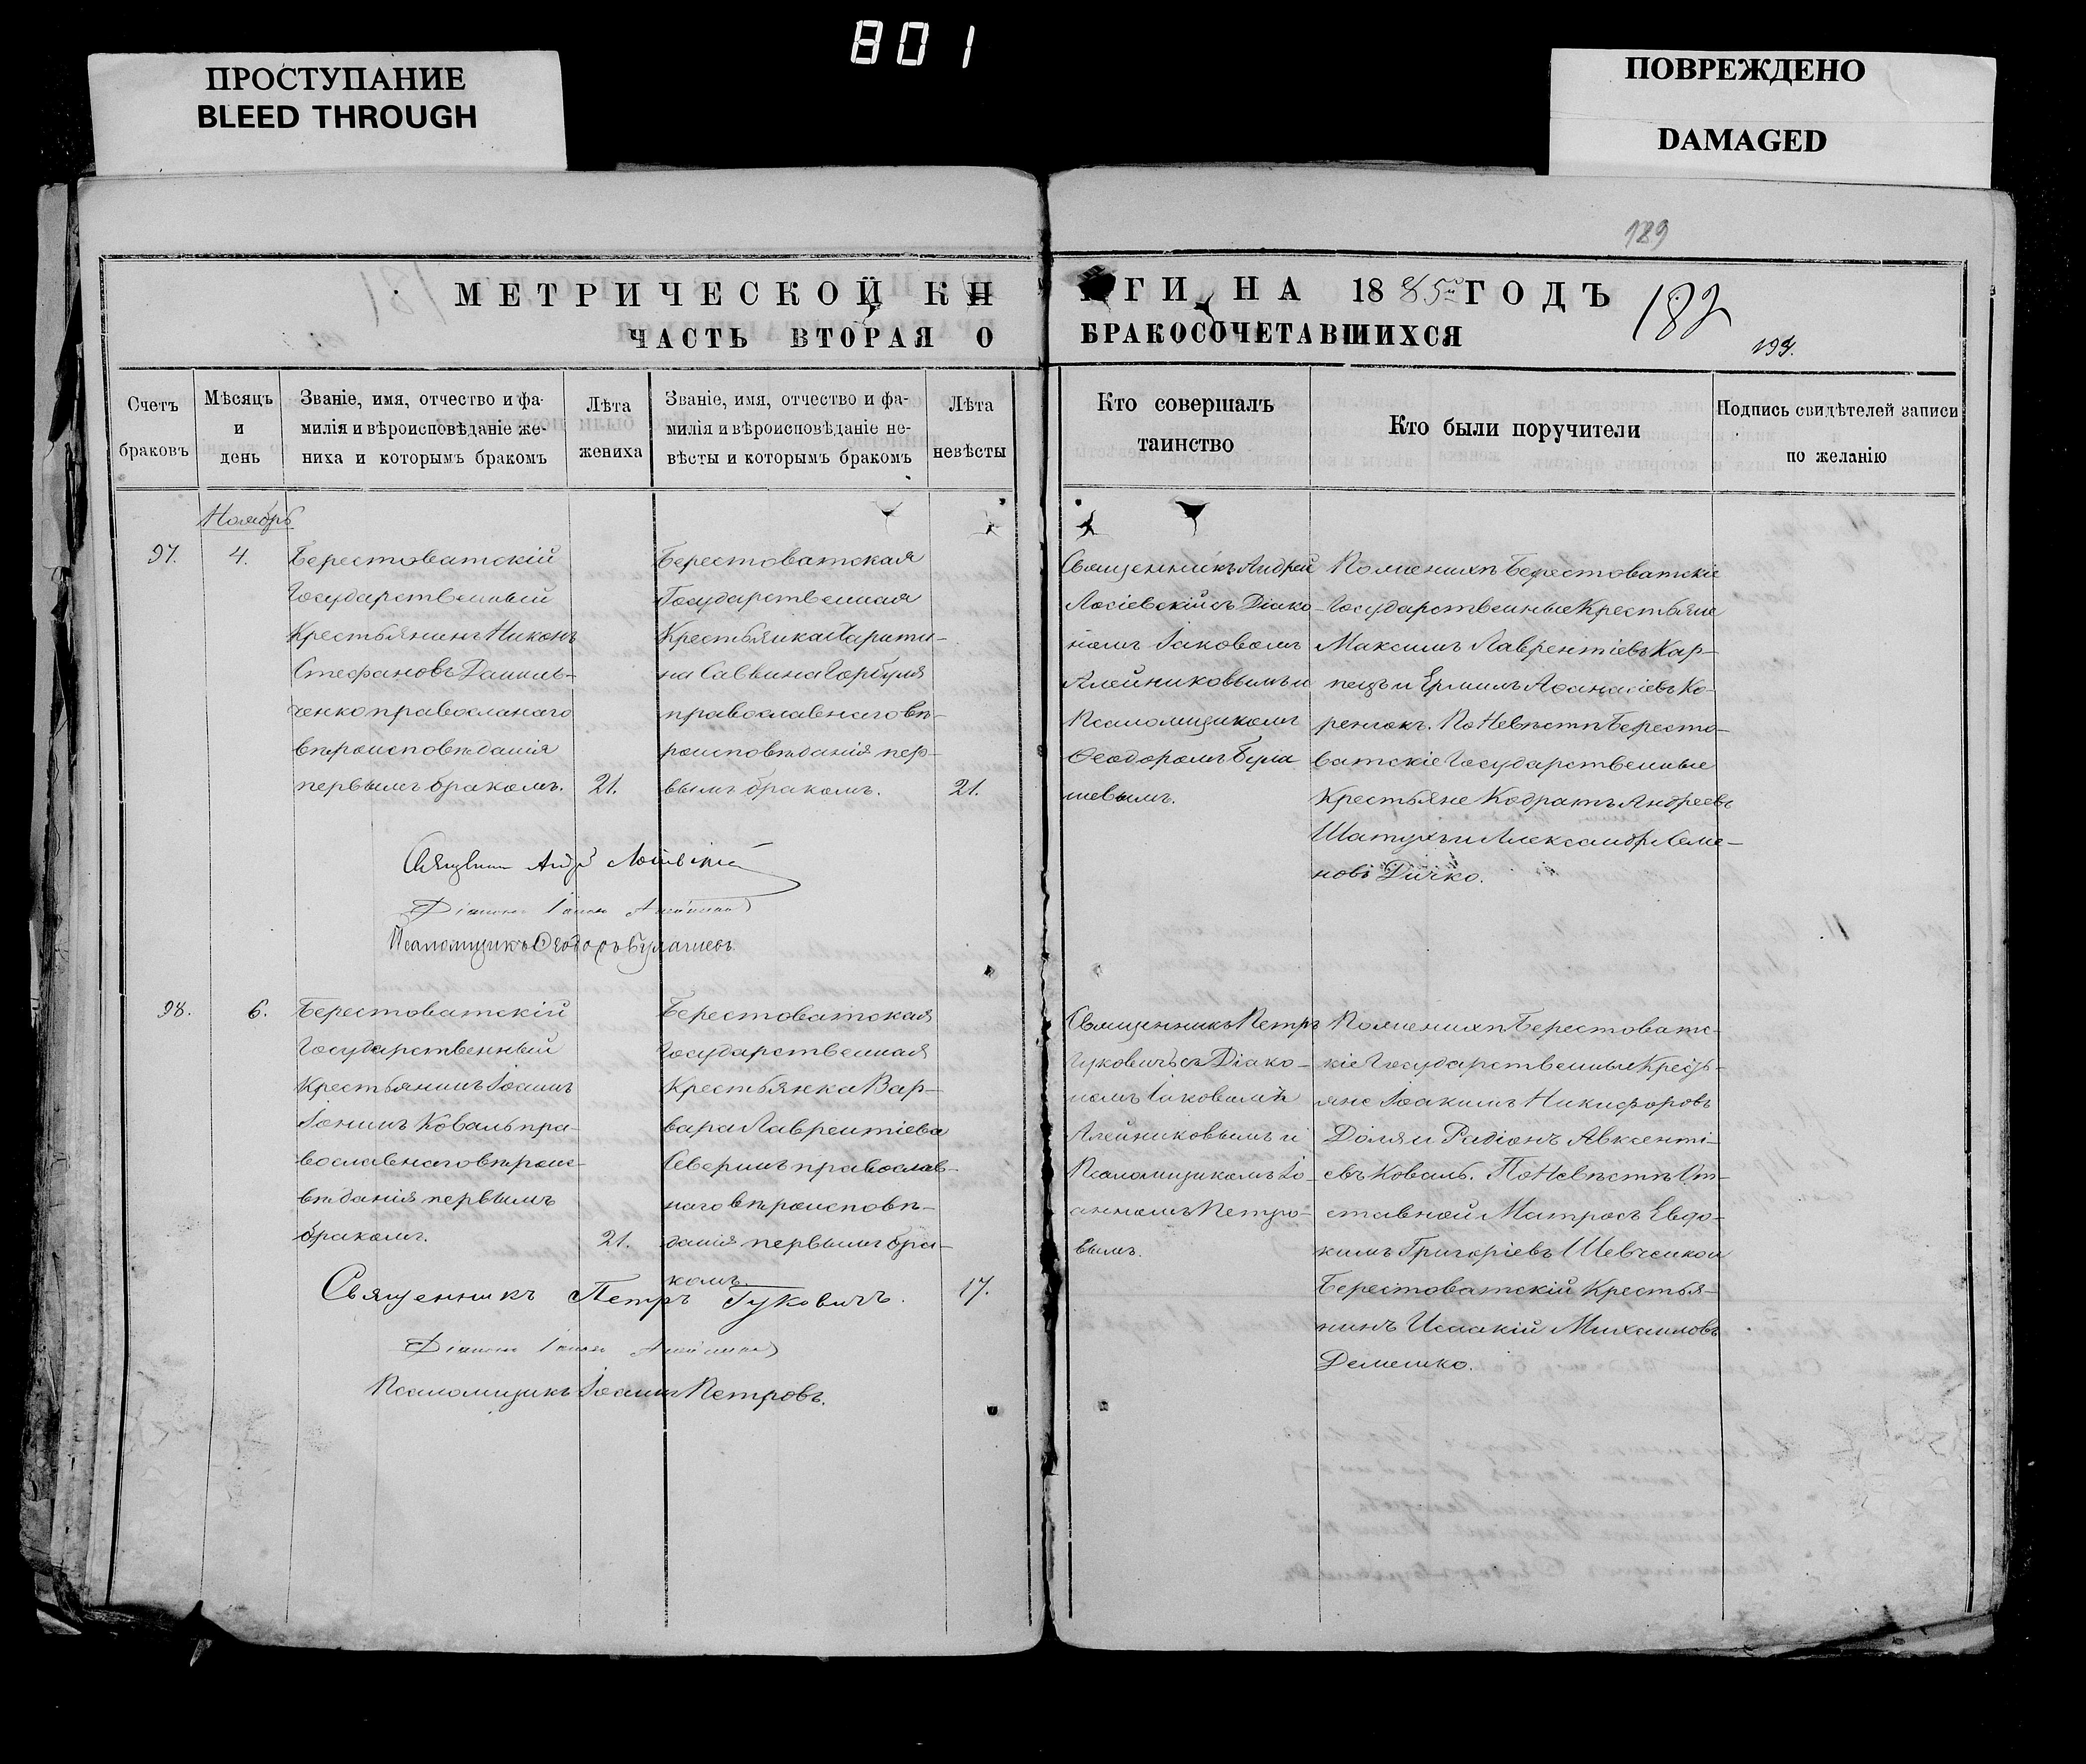 801
ПРОСТУПАНИЕ
BLEED THROUGH
ПОВРЕЖДЕНО
DAMAGED
189
МЕТРИЧЕСКОЙ КН
ГИ НА 1885 ГОДЪ
182
ЧАСТЬ ВТОРАЯ О
БРАКОСОЧЕТАВШИХСЯ
Счетъ
браковъ
Мѣсяцъ
и
день
Званіе, имя, отчество и фа-
милія и вѣроисповѣданіе же-
ниха и которымъ бракомъ
Лѣта
жениха
Званіе, имя, отчество и фа-
милія и вѣроисповѣданіе не-
вѣсты и которымъ бракомъ
Лѣта
невѣсты
Кто совершалъ
таинство
Кто были поручители
Подпись свидѣтелей записи
по желанію
Ноябрь
97.
4.
Берестоватскій
Государственный
Крестьянинъ Никонъ
Стефановъ Даниль-
ченко православнаго
вѣроисповѣданія
первымъ бракомъ.
21.
Берестоватская
Государственная
Крестьянка Харити-
на Саввина Горбуля
православнаго вѣ-
роисповѣданія пер-
вымъ бракомъ.
21.
Священникъ Андрей
Лосіевскій съ Діако-
номъ Іаковомъ
Алейниковымъ и
Псаломщикомъ
Ѳеодоромъ
По женихѣ Берестоватскіе
Государственные Крестьяне
Максимъ Лаврентіевъ Кар-
пецъ и Ермилъ Аѳанасіевъ Ко-
По Невѣстѣ Бересто-
ватскіе Государственные
Крестьяне Кодратъ Андреевъ
и Александръ Семе-
новъ Дичко.
Священникъ Андрей
Діаконъ Іаковъ
Псаломщикъ Ѳеодоръ
98.
6.
Берестоватскій
Государственный
Крестьянинъ Іоаннъ
Іонинъ Коваль пра-
вославнаго вѣроис-
вѣданія первымъ
бракомъ.
21.
Берестоватская
Государственная
Крестьянка Вар-
вара Лаврентіева
Северинъ православ-
наго вѣроисповѣ-
данія первымъ бра-
комъ.
17.
Священникъ Петръ
Гуковичъ съ Діако-
номъ Іаковомъ
Алейниковымъ и
Псаломщикомъ Іо-
анномъ Петро-
вымъ.
По женихѣ Берестоватс-
кіе Государственные Кресть-
яне Іоакимъ Никифоровъ
Доля и Радіонъ Авксенті-
евъ Коваль. По Невѣстѣ От-
ставной Матросъ Евдо-
кимъ Григоріевъ Шевченко и
Берестоватскій Крестья-
нинъ Исаакій Михаиловъ
Демешко.
Священникъ Петръ Гуковичъ.
Діаконъ Іаковъ
Псаломщикъ Іоаннъ Петровъ.